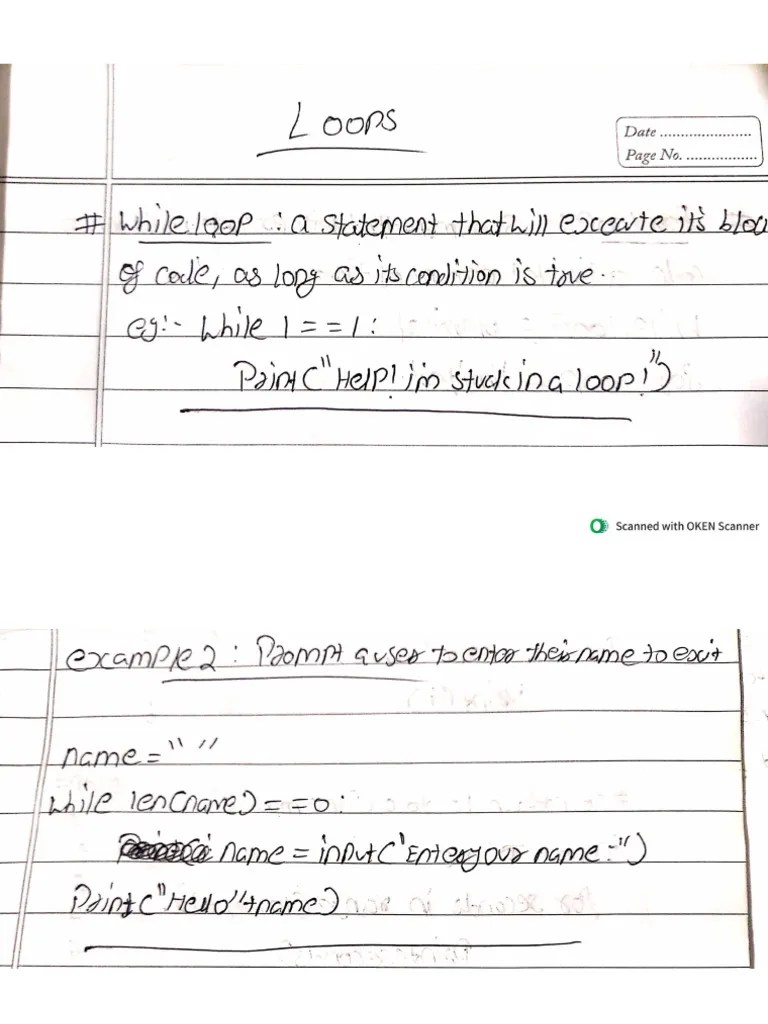 Loops
Date ......................
Page No. .................
# While loop : a statement that will execute it's bloc
of code, as long as its condition is true.
eg:- While 1 == 1 :
Print ("Help! im stuck in a loop!")
Scanned with OKEN Scanner
example 2 : Prompt a user to enter their name to exit
name = " "
While len(name) == 0 :
name = input ("Enter your name :-")
Print ("Hello"+name)